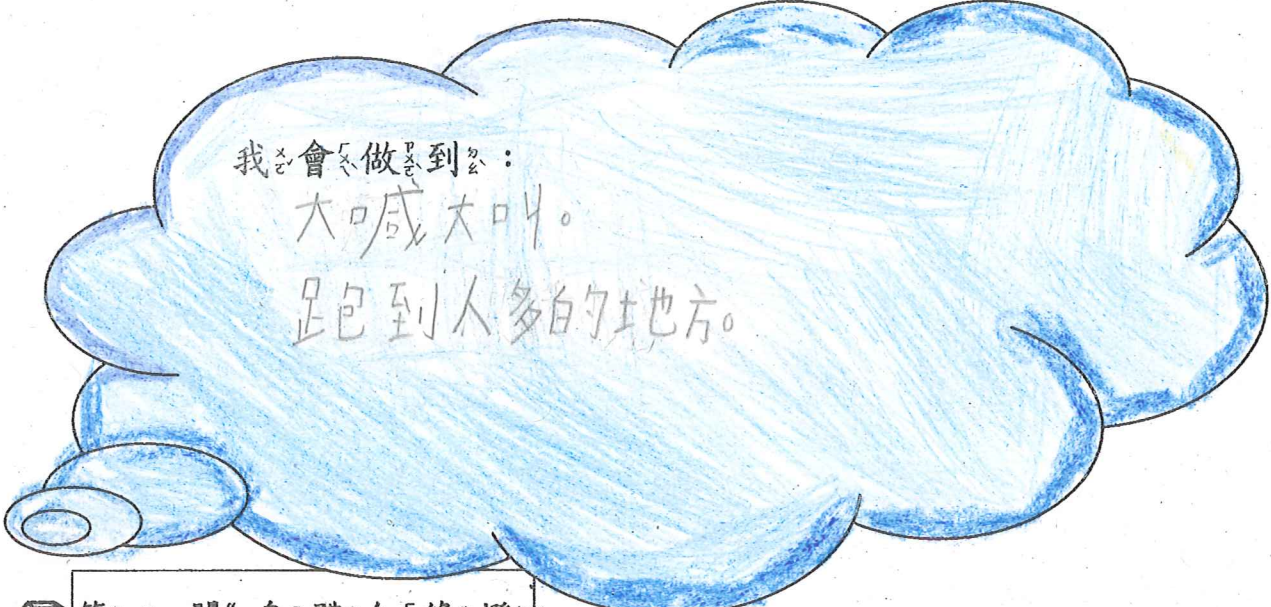 我會做到：
大喊大叫。
跑到人多的地方。